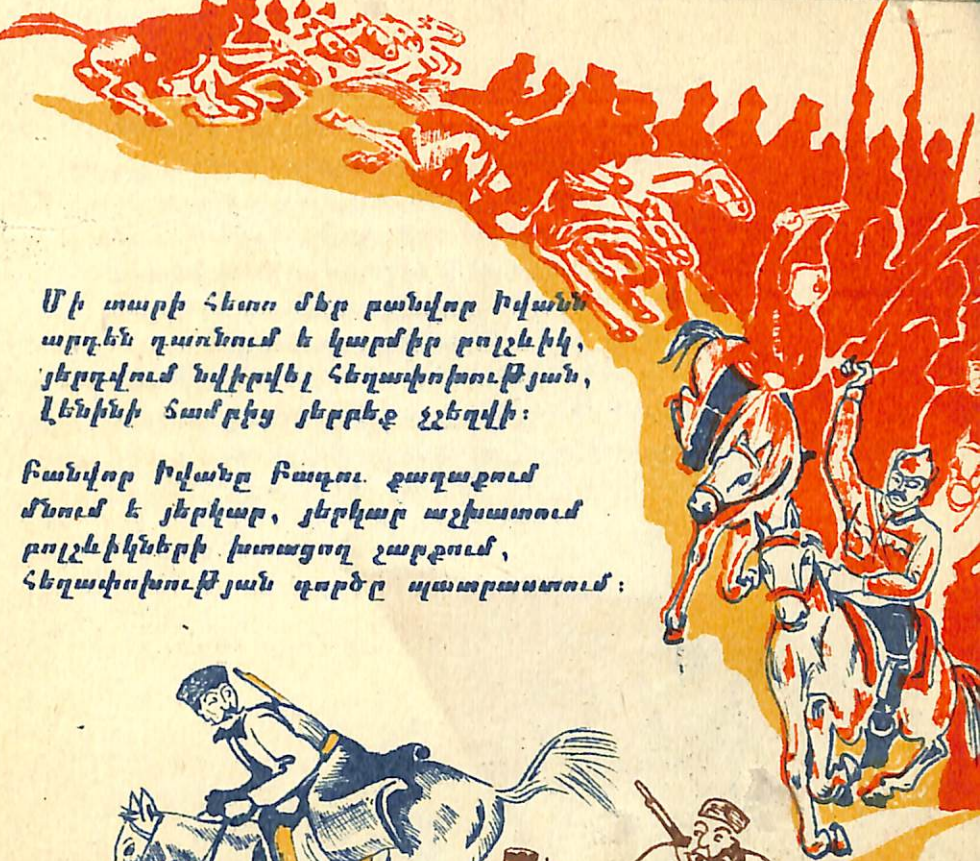 Մի տարի հետո մեր բանվոր Իվանն
արդեն դառնում է կարմիր բոլշևիկ,
յերդվում նվիրվել հեղափոխության,
Լենինի ճամբից յերբեք չշեղվի։
Բանվոր Իվանը Բագու քաղաքում
մնում է յերկար, յերկար աշխատում
բոլշևիկների խտացող շարքում,
հեղափոխության գործը պատրաստում։